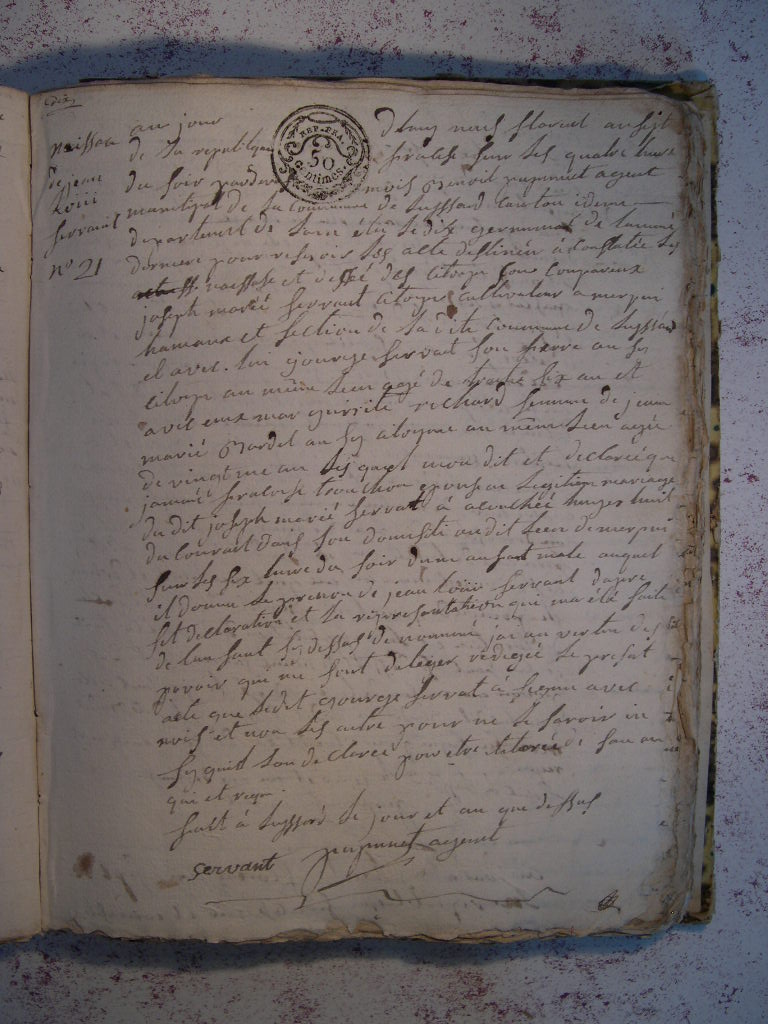 naissan
de jean
Loüi
Servant
n° 21
REP. FRA.
50
Centimes
au jour dhuy neuf floreal an sept
de La republique fransaise sur Les quatre hure
du soir pardevant mois Benoit agent
municipal de La Commune de Lussard Canton idem
departement de L'ain elu Le dix germinal de Lanné
derniere pour resevoir Les acte destinés à Constatée Les
naissase et desséé des Citoyen Son Compareux
joseph marié Servant Citoyen Cultivateur a merpui
hamaux et section de La dite Commune de Lussard
et avec Lui gourge Servant son frerre au sy
Citoyen au même Lieu agé de trante six an et
avec eux marguerite richard femme de jean
marié Bardel au sy Citoyene au même Lieu agée
de vingt an Les quel mon dit et declareé que
fransoise trouchon epouse en Legitime mariage
du dit joseph marié Servant à acouchée huyer huit
du Courant dans son domisile audit Lieu de merpui
sur Les six hure du soir dun anfant male auquel
il donne Le prenon de jean Loüi Servant dapre
set declaration et La representation qui ma été faite
de Lanfant sy dessus denommé jai an vertu des
pouvoir qui me sont deleger redigée Le present
acte que Ledit gourge Servant à signée avec
mois et non Les autre pour ne Le savoir in
sy quil Lon declareé pour etre de son an
qui et requi
fait à Lussard Le jour et an que dessus
Servant agent